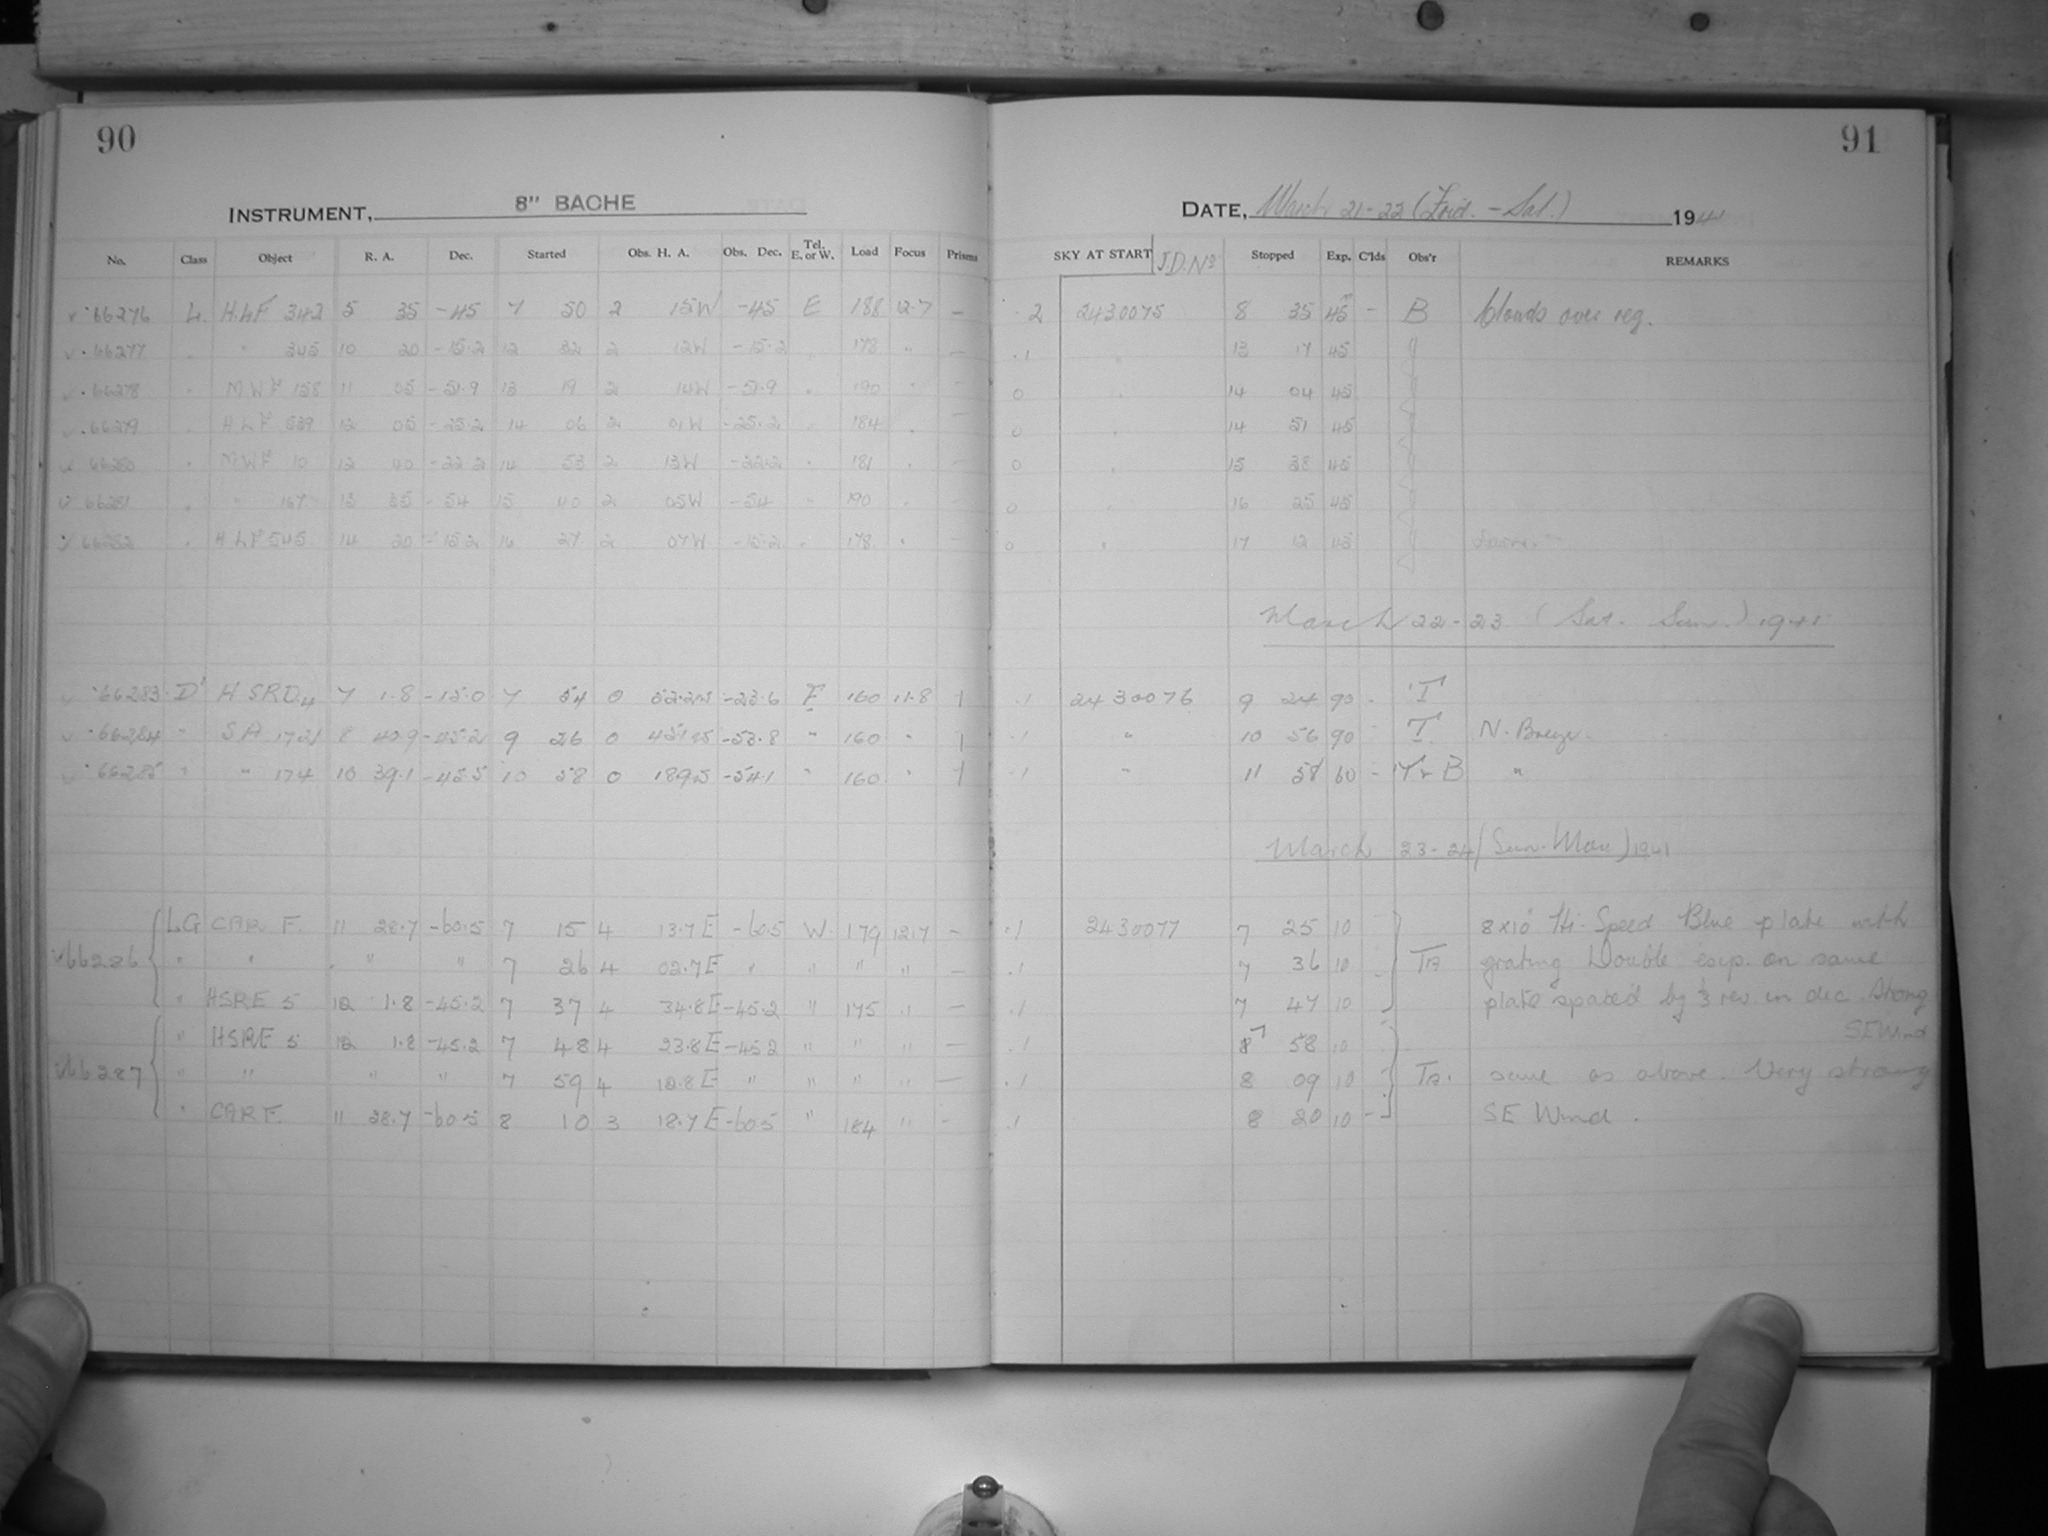 90
91
INSTRUMENT, 8" BACHE
DATE, March 21-22 (Frid. - Sat.) 1941
No. Class Object R. A. Dec. Started Obs. H. A. Obs. Dec. Tel. E. or W. Load Focus Prisms SKY AT START J.D. No Stopped Exp. C'lds Obs'r REMARKS
66276 L. HLF 342 5 35 -45 7 50 2 15W -45 E 188 12.7 - .2 2430075 8 35 45 - B Clouds over reg.
66277 " 345 10 20 -15.2 12 32 2 12W -15.2 178 " - .1 " 13 17 45
66278 MWF 158 11 05 -51.9 13 19 2 14W -51.9 190 - 0 " 14 04 45
66279 HLF 539 12 05 -25.2 14 06 2 01W -25.2 184 - 0 " 14 51 45
66280 MWF 10 12 40 -22.2 14 53 2 13W -22.2 181 - 0 " 15 38 45
66281 " 167 13 35 -54 15 40 2 05W -54 190 - 0 " 16 25 45
66282 HLF 545 14 20 -15.2 16 27 2 07W -15.2 178 - 0 " 17 12 45
March 22-23 (Sat. Sun.) 1941
66283 D' HSRD4 7 1.8 -15.0 7 54 0 -23.6 E 160 11.8 1 .1 2430076 9 24 90 - T
66284 " SA 8 40.9 -45.2 9 26 0 -53.8 " 160 " 1 .1 " 10 56 90 - T N. Breeze
66285 " " 174 10 39.1 -45.5 10 58 0 -54.1 " 160 " 1 .1 " 11 58 60 - T & B "
March 23-24 (Sun. Mon) 1941
LG CAR F. 11 28.7 -60.5 7 15 4 13.7E -60.5 W. 179 12.7 - .1 2430077 7 25 10 8x10" Hi-Speed Blue plate with
66286 " " " " " 7 26 4 02.7E " " " " - .1 7 36 10 TA grating Double exp. on same
" HSRE 5 12 1.8 -45.2 7 37 4 34.8E -45.2 " 175 " - .1 7 47 10 plate spaced by 1/3 rev in dec Strong
SE Wind
" HSRE 5 12 1.8 -45.2 7 48 4 23.8E -45.2 " " " - .1 7 58 10
66287 " " " " 7 59 4 12.8E " " " " - .1 8 09 10 TA. same as above. Very strong
" CAR F. 11 28.7 -60.5 8 10 3 18.7E -60.5 " 184 " - .1 8 20 10 - SE Wind.